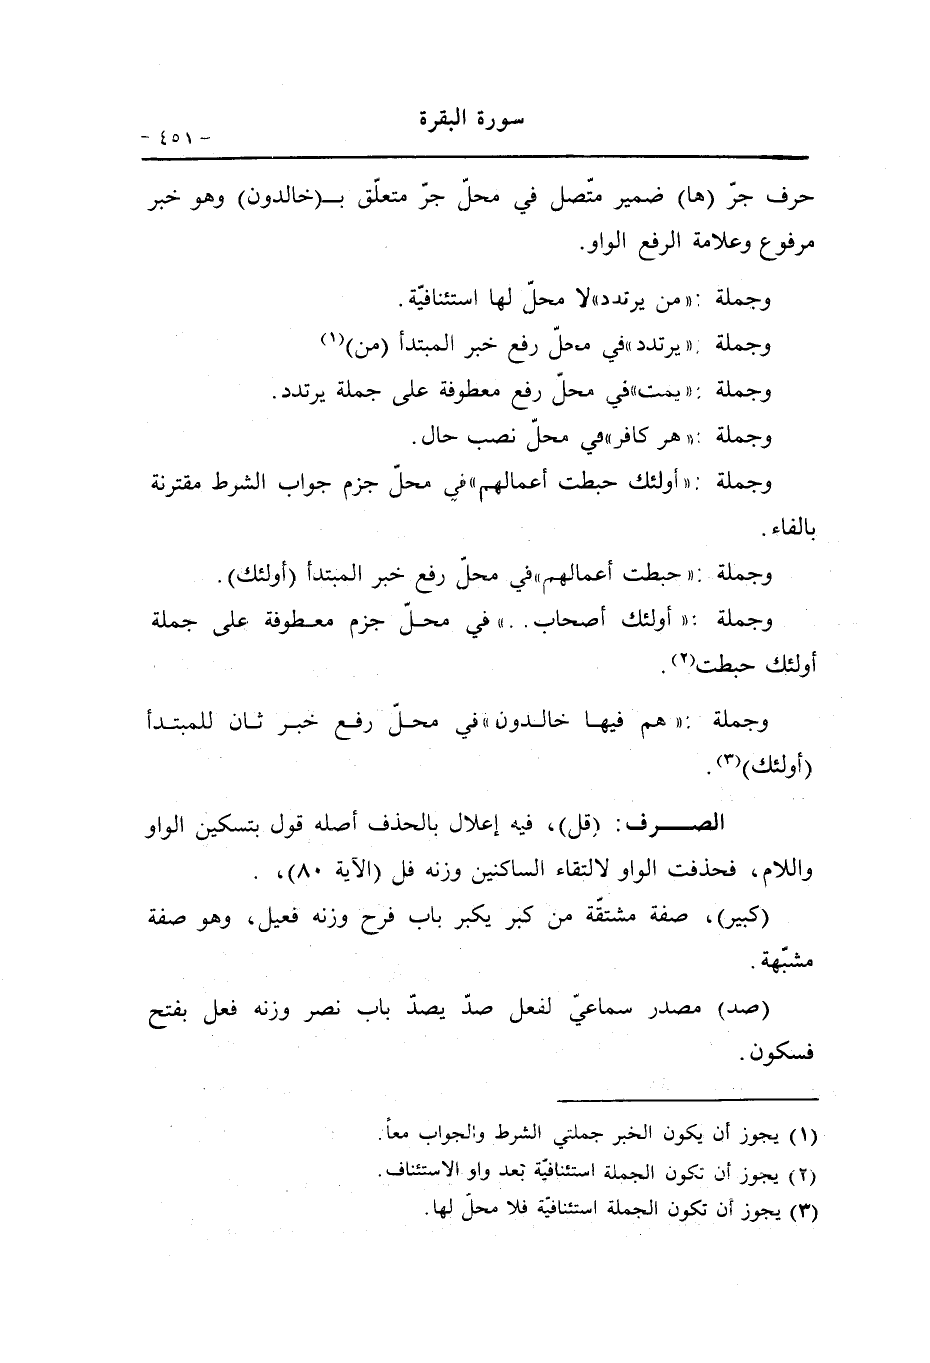 سورة البقرة
- ٤٥١ -
حرف جرّ (ها) ضمير متّصل في محلّ جرّ متعلّق بـ(خالدون) وهو خبر
مرفوع وعلامة الرفع الواو.
وجملة :«من يرتدد»لا محلّ لها استئنافيّة.
وجملة :«يرتدد»في محلّ رفع خبر المبتدأ (من)(١)
وجملة :«يمت»في محلّ رفع معطوفة على جملة يرتدد.
وجملة :«هر كافر»في محلّ نصب حال.
وجملة :«أولئك حبطت أعمالهم»في محلّ جزم جواب الشرط مقترنة
بالفاء.
وجملة :«حبطت أعمالهم»في محلّ رفع خبر المبتدأ (أولئك).
وجملة :« أولئك أصحاب...» في محلّ جزم معطوفة على جملة
أولئك حبطت(٢).
وجملة :« هم فيها خالدون»في محلّ رفع خبر ثان للمبتدأ
(أولئك)(٣).
الصرف: (قل)، فيه إعلال بالحذف أصله قول بتسكين الواو
واللام، فحذفت الواو لالتقاء الساكنين وزنه فل (الآية ٨٠)، .
(كبير)، صفة مشتقّة من كبر يكبر باب فرح وزنه فعيل، وهو صفة
مشبّهة.
(صد) مصدر سماعيّ لفعل صدّ يصدّ باب نصر وزنه فعل بفتح
فسكون.
(١) يجوز أن يكون الخبر جملتي الشرط والجواب معاً.
(٢) يجوز أن تكون الجملة استئنافيّة بعد واو الاستئناف.
(٣) يجوز أن تكون الجملة استئنافيّة فلا محلّ لها.